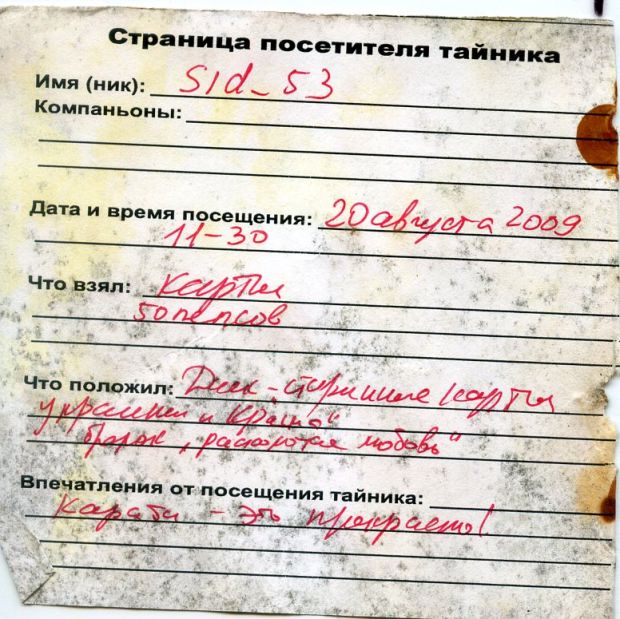 Страница посетителя тайника
Имя (ник): Sid_53
Компаньоны:
Дата и время посещения: 20 августа 2009
11-30
Что взял: карты
50 пепсов
Что положил: Диск - старинные карты
украины и Крыма"
брелок „ любовь"
Впечатления от посещения тайника:
Карати - это прекрасно!